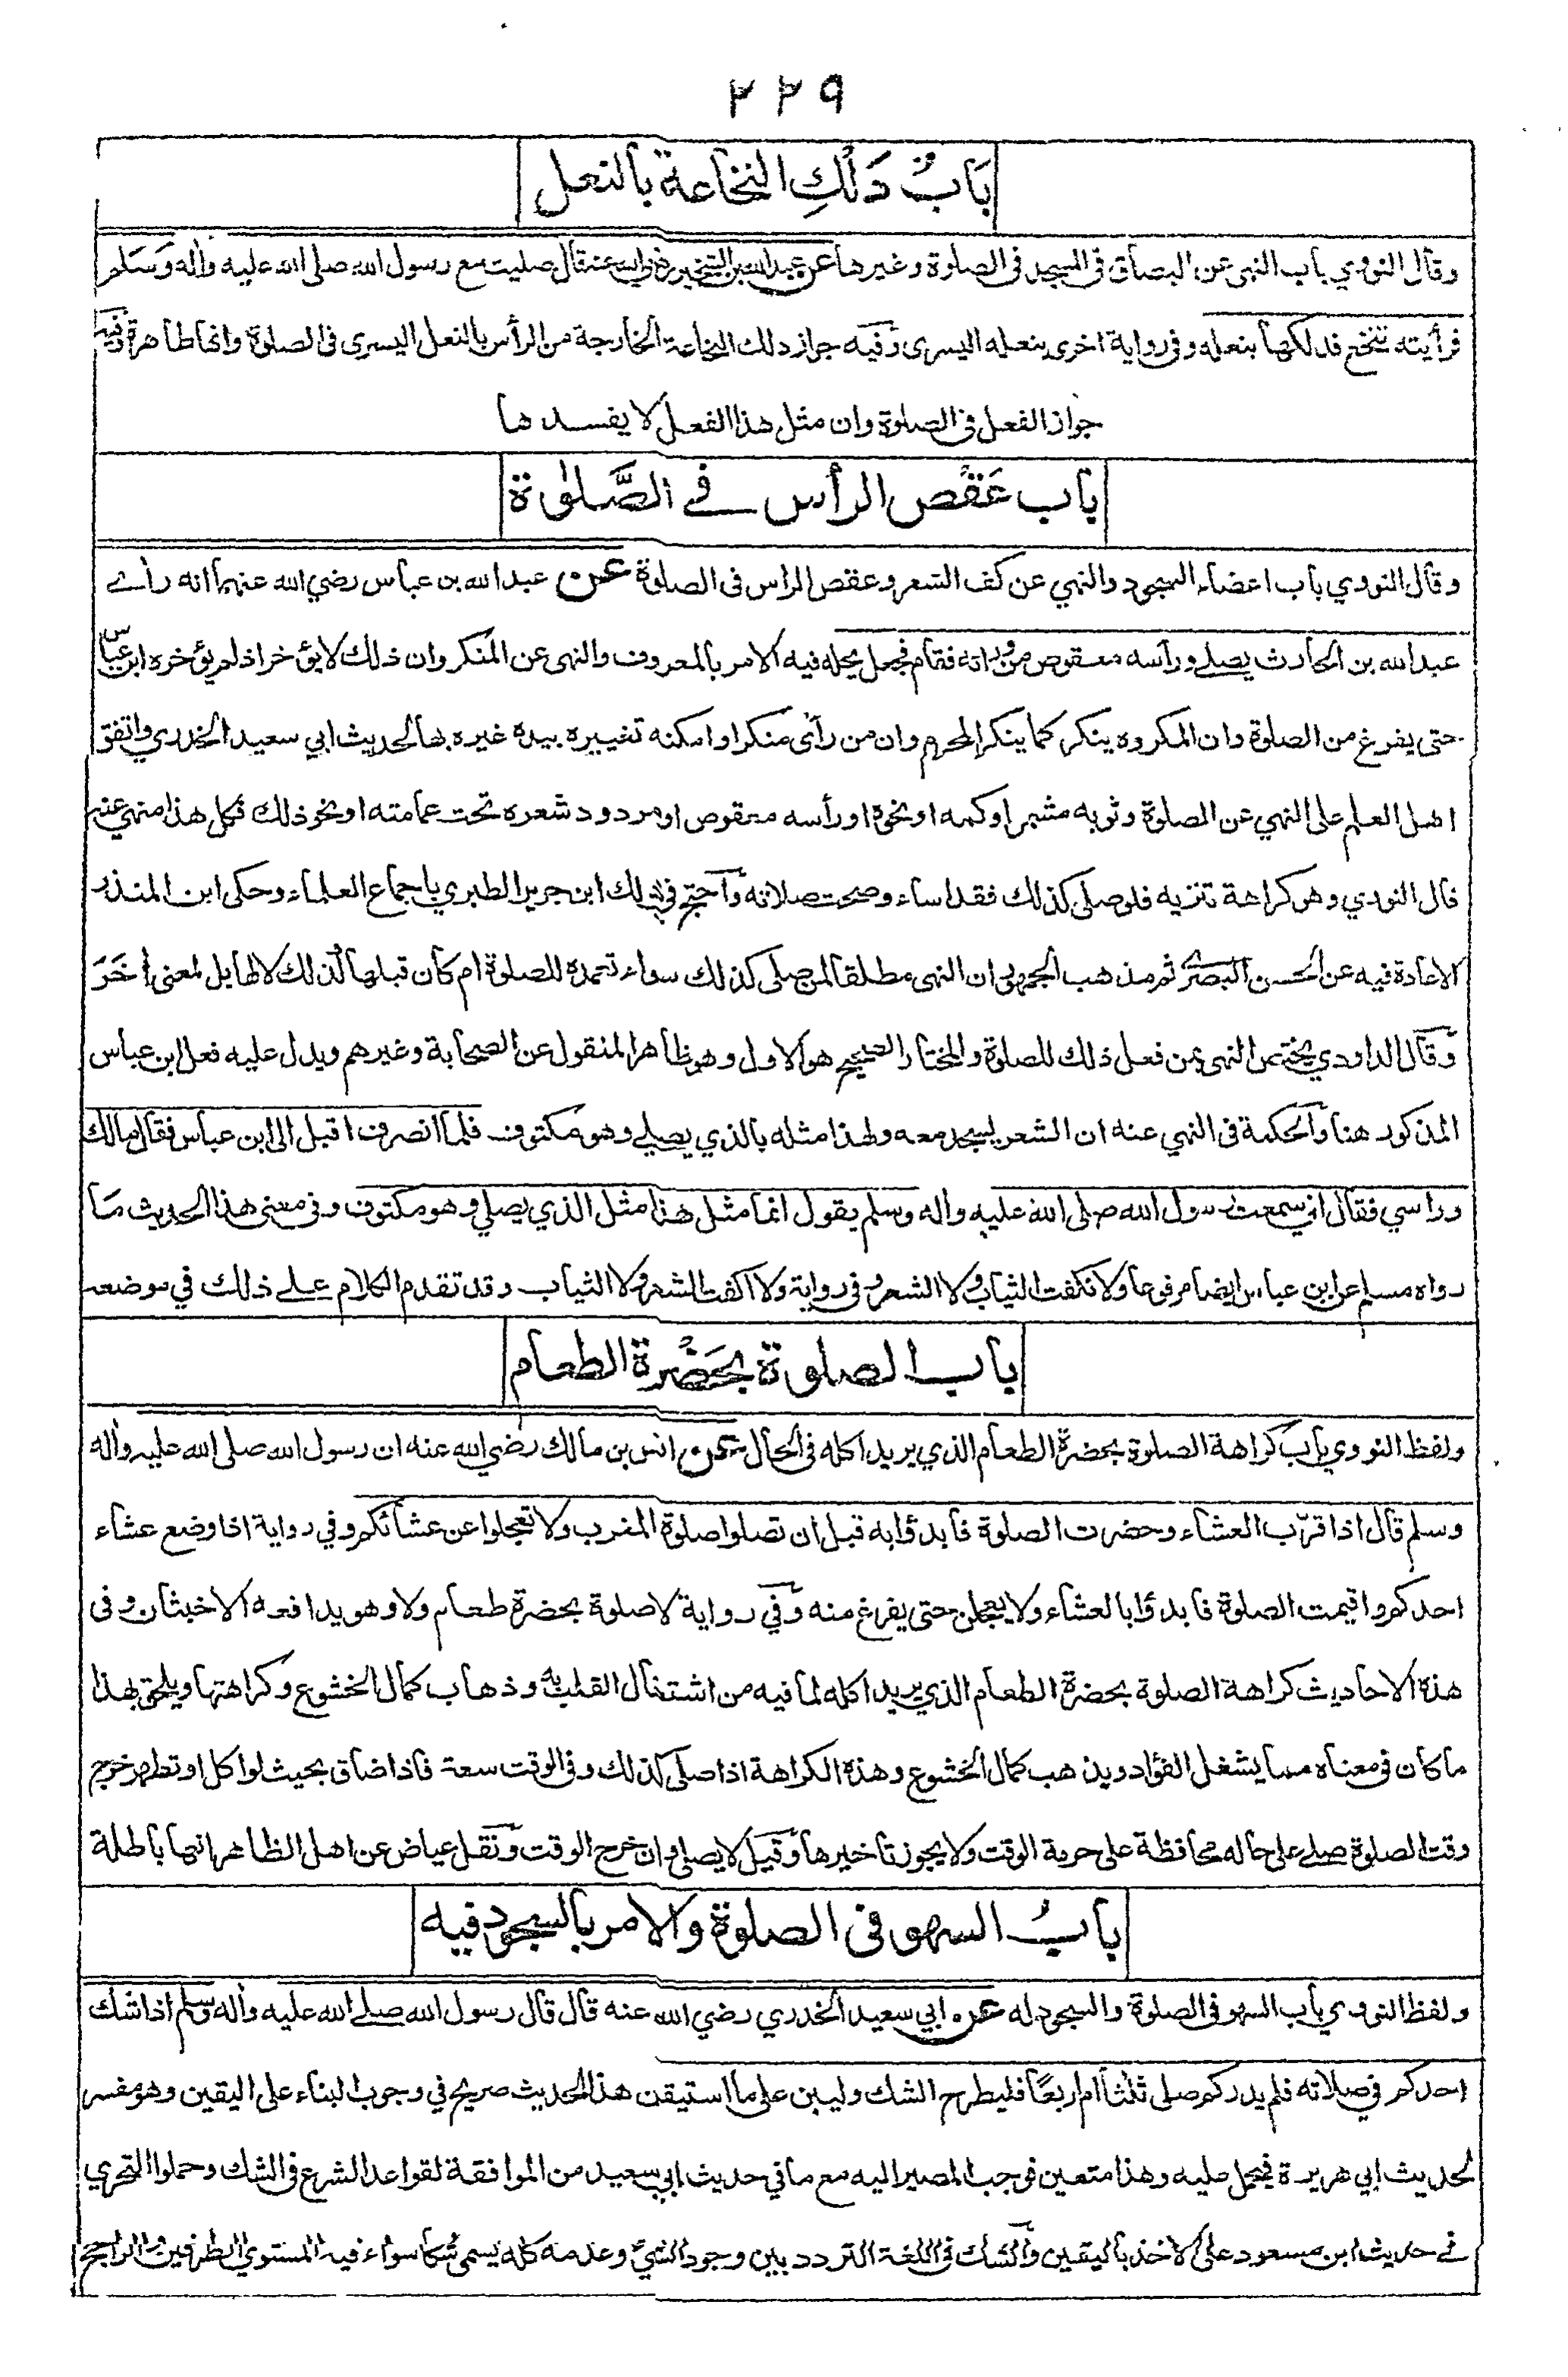 ٢٢٩
بَابُ دَلْكِ النخاعة بالنعل
وقال النووي باب النهى عن البصاق فى المسجد فى الصلوة وغيرها عن عبد الله بن الشخير رضي الله عنه قال صليت مع رسول الله صلى الله عليه واٰله وَسَلم
فرأيته تنخع فدلكها بنعله وفى رواية اخرى بنعله اليسرى وفيه جواز دلك النخاعة الخارجة من الرأس بالنعل اليسرى فى الصلوة وانها طاهرة وفيه
جواز الفعل فى الصلوة وان مثل هذا الفعل لا يفسد ها
باب عَقْص الرأس في الصَّلوٰة
وقال النووي باب اعضاء السجود والنهي عن كف الشعر وعقص الراس فى الصلوة عن عبد الله بن عباس رضي الله عنهما انه رأے
عبد الله بن الحارث يصلے ورأسه معقوص من ورائه فقام فجعل يحله فيه الامر بالمعروف والنهى عن المنكر وان ذلك لا يؤخر اذ لم يؤخره ابن عباس
حتى يفرغ من الصلوة وان المكروه ينكر كما ينكر المحرم وان من رأى منكرا وامكنه تغييره بيده غيره بها لحديث ابي سعيد الخدري واتفق
اهل العلم على النهي عن الصلوة وثوبه مشمر او كمه او نحوه او رأسه معقوص او مردود شعره تحت عمامته او نحو ذلك فكل هذا منهي عنه
قال النووي وهو كراهة تنزيه فلو صلى كذلك فقد اساء وصحت صلاته واحتج فى ذلك ابن جرير الطبري باجماع العلماء وحكى ابن المنذر
الاعادة فيه عن الحسن البصرے ثم مذهب الجمهور ان النهى مطلقا لمن صلى كذلك سواء تعمده للصلوة ام كان قبلها كذلك لا لها بل لمعنى اٰخَرَ
وقال الداودي يختص النهى بمن فعل ذلك للصلوة والمختار الصحيح هو الاول وهو ظاهر المنقول عن الصحابة وغيرهم ويدل عليه فعل ابن عباس
المذكور هنا والحكمة فى النهي عنه ان الشعر يسجد معه ولهذا مثله بالذي يصلے وهو مكتوف فلما انصرف اقبل الى ابن عباس فقال مالك
وراسي فقال اني سمعت رسول الله صلى الله عليه واله وسلم يقول انما مثل هذا مثل الذي يصلي وهو مكتوف وفى معنى هذا الحديث مَا
رواه مسلم عن ابن عباس ايضا مرفوعا ولا نكفت الثياب ولا الشعر وفى رواية ولا اكفت الشعر ولا الثياب وقد تقدم الكلام علے ذلك في موضعه
باب الصلوة بحَضْرة الطعام
ولفظ النووي باب كراهة الصلوة بحضرة الطعام الذي يريد اكله فى الحال عن انس بن مالك رضي الله عنه ان رسول الله صلى الله عليه واٰله
وسلم قال اذا قرّب العشاء وحضرت الصلوة فابدؤا به قبل ان تصلوا صلوة المغرب ولا تعجلوا عن عشائكم وفي رواية اذا وضع عشاء
احدكم واقيمت الصلوة فابدؤا بالعشاء ولا يعجلن حتى يفرغ منه وفي رواية لا صلوة بحضرة طعام ولا وهو يدافعه الاخبثان وفى
هذه الاحاديث كراهة الصلوة بحضرة الطعام الذي يريد اكله لما فيه من اشتغال القلب به وذهاب كمال الخشوع وكراهتها ويلحق بهذا
ما كان فى معناه مما يشغل الفؤاد ويذهب كمال الخشوع وهذه الكراهة اذا صلى كذلك وفى الوقت سعة فاذا ضاق بحيث لو اكل او تطهر خرج
وقت الصلوة صلے على حاله محافظة على حرمة الوقت ولا يجوز تاخيرها وقيل لا يصلي وان خرج الوقت ونقل عياض عن اهل الظاهر انها باطلة
بابُ السهو فى الصلوة والامر بالسجود فيه
ولفظ النووي باب السهو فى الصلوة والسجود له عن ابي سعيد الخدري رضي الله عنه قال قال رسول الله صلے الله عليه واٰله وسلم اذا شك
احدكم في صلاته فلم يدر كم صلى ثلثا ام اربعًا فليطرح الشك وليبن على ما استيقن هذا الحديث صريح في وجوب البناء على اليقين وهو مفسر
لحديث ابي هريرة فيحمل عليه وهذا متعين فوجب المصير اليه مع ما في حديث ابي سعيد من الموافقة لقواعد الشرع فى الشك وحملوا التحري
في حديث ابن مسعود على الاخذ باليقين والشك فى اللغة التردد بين وجود الشيئ وعدمه كله يسمى شكا سواء فيه المستوي الطرفين والراجح